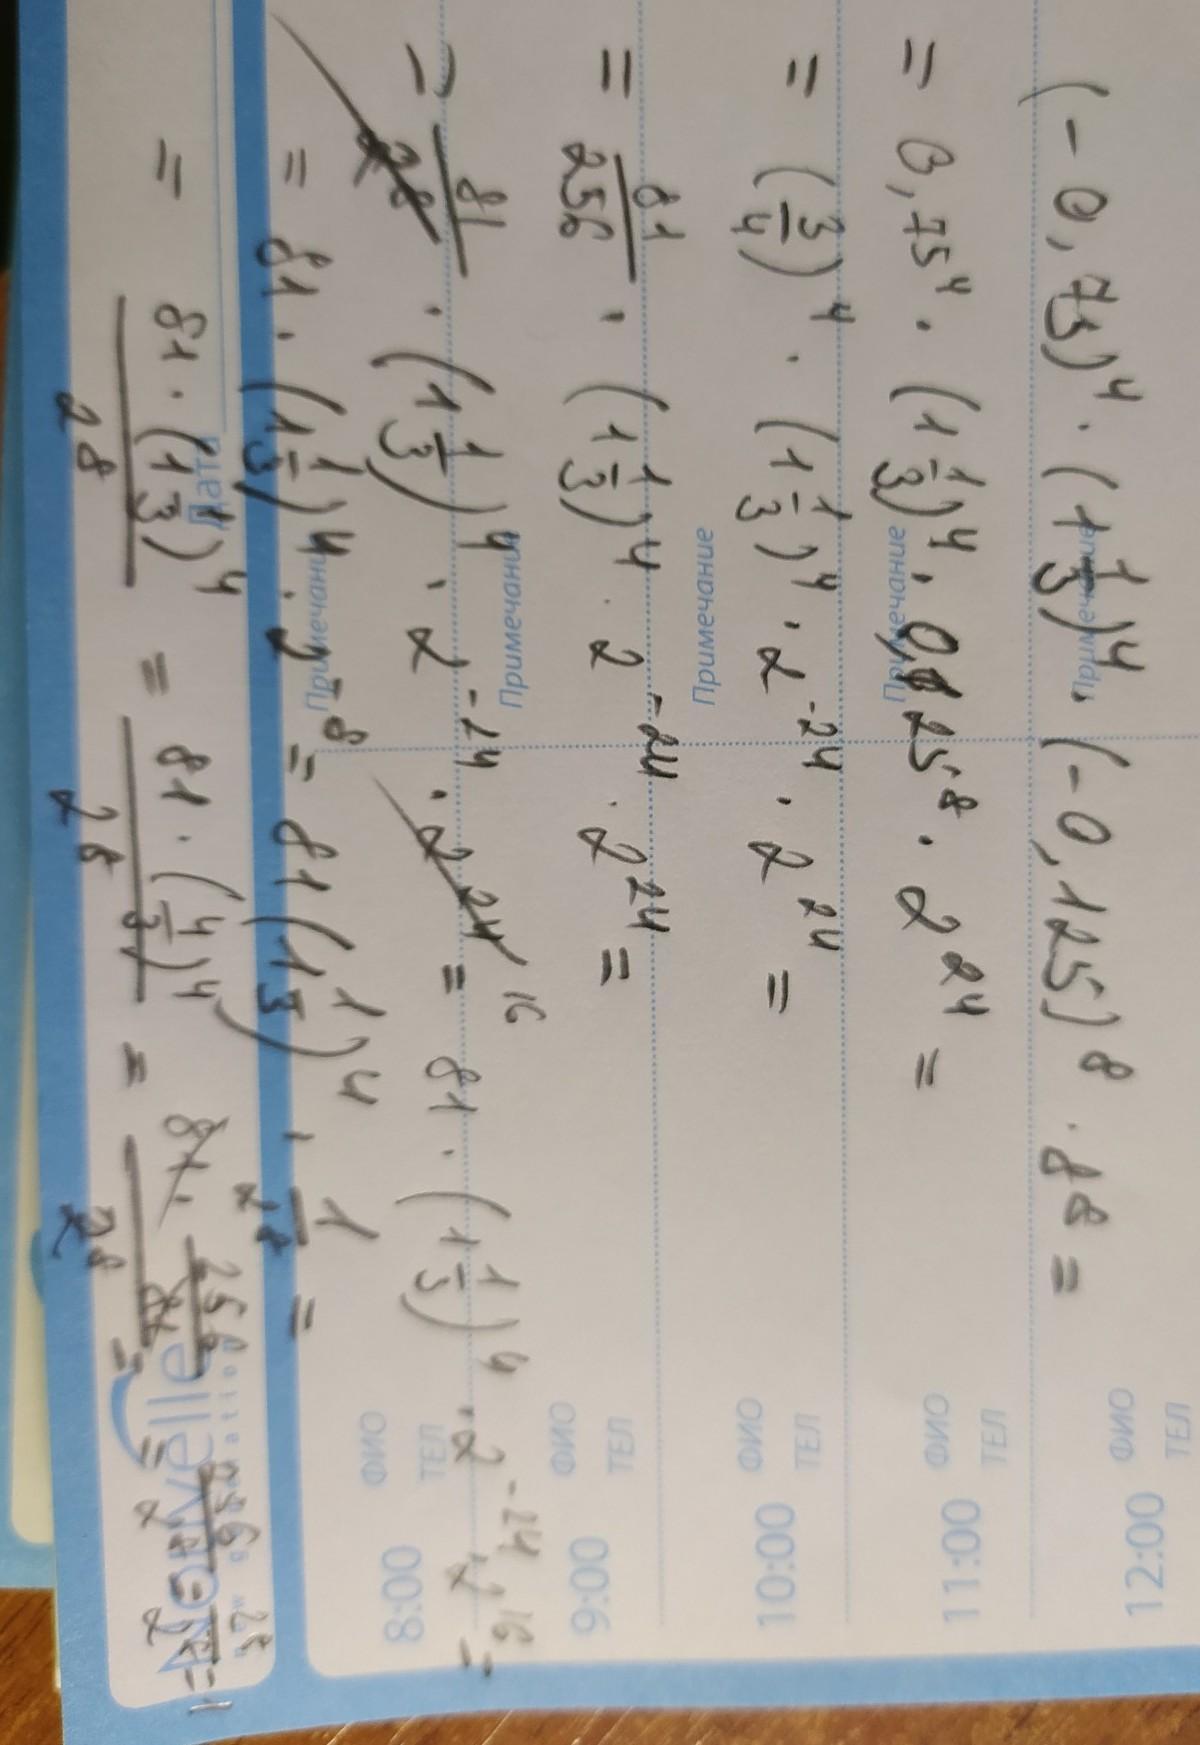 (-0,75)⁴ · (1 1/3)⁴ · (-0,125)⁸ · 8⁸ =
= 0,75⁴ · (1 1/3)⁴ · 0,125⁸ · 2²⁴ =
= (3/4)⁴ · (1 1/3)⁴ · 2⁻²⁴ · 2²⁴ =
= 81/256 · (1 1/3)⁴ · 2⁻²⁴ · 2²⁴ =
= 81/2⁸ · (1 1/3)⁴ · 2⁻²⁴ · 2²⁴ ¹⁶ = 81 · (1 1/3)⁴ · 2⁻²⁴ · 2¹⁶ =
= 81 · (1 1/3)⁴ · 2⁻⁸ = 81 (1 1/3)⁴ · 1/2⁸ =
= 81 · (1 1/3)⁴ / 2⁸ = 81 · (4/3)⁴ / 2⁸ = 81 · 256/81 / 2⁸ = = 256/2⁸ = 2⁸/2⁸ = 1
12:00 ФИО ТЕЛ Примечание
11:00 ФИО ТЕЛ Примечание
10:00 ФИО ТЕЛ Примечание
9:00 ФИО ТЕЛ Примечание
8:00 ФИО ТЕЛ Примечание
Дата
Nouvelle